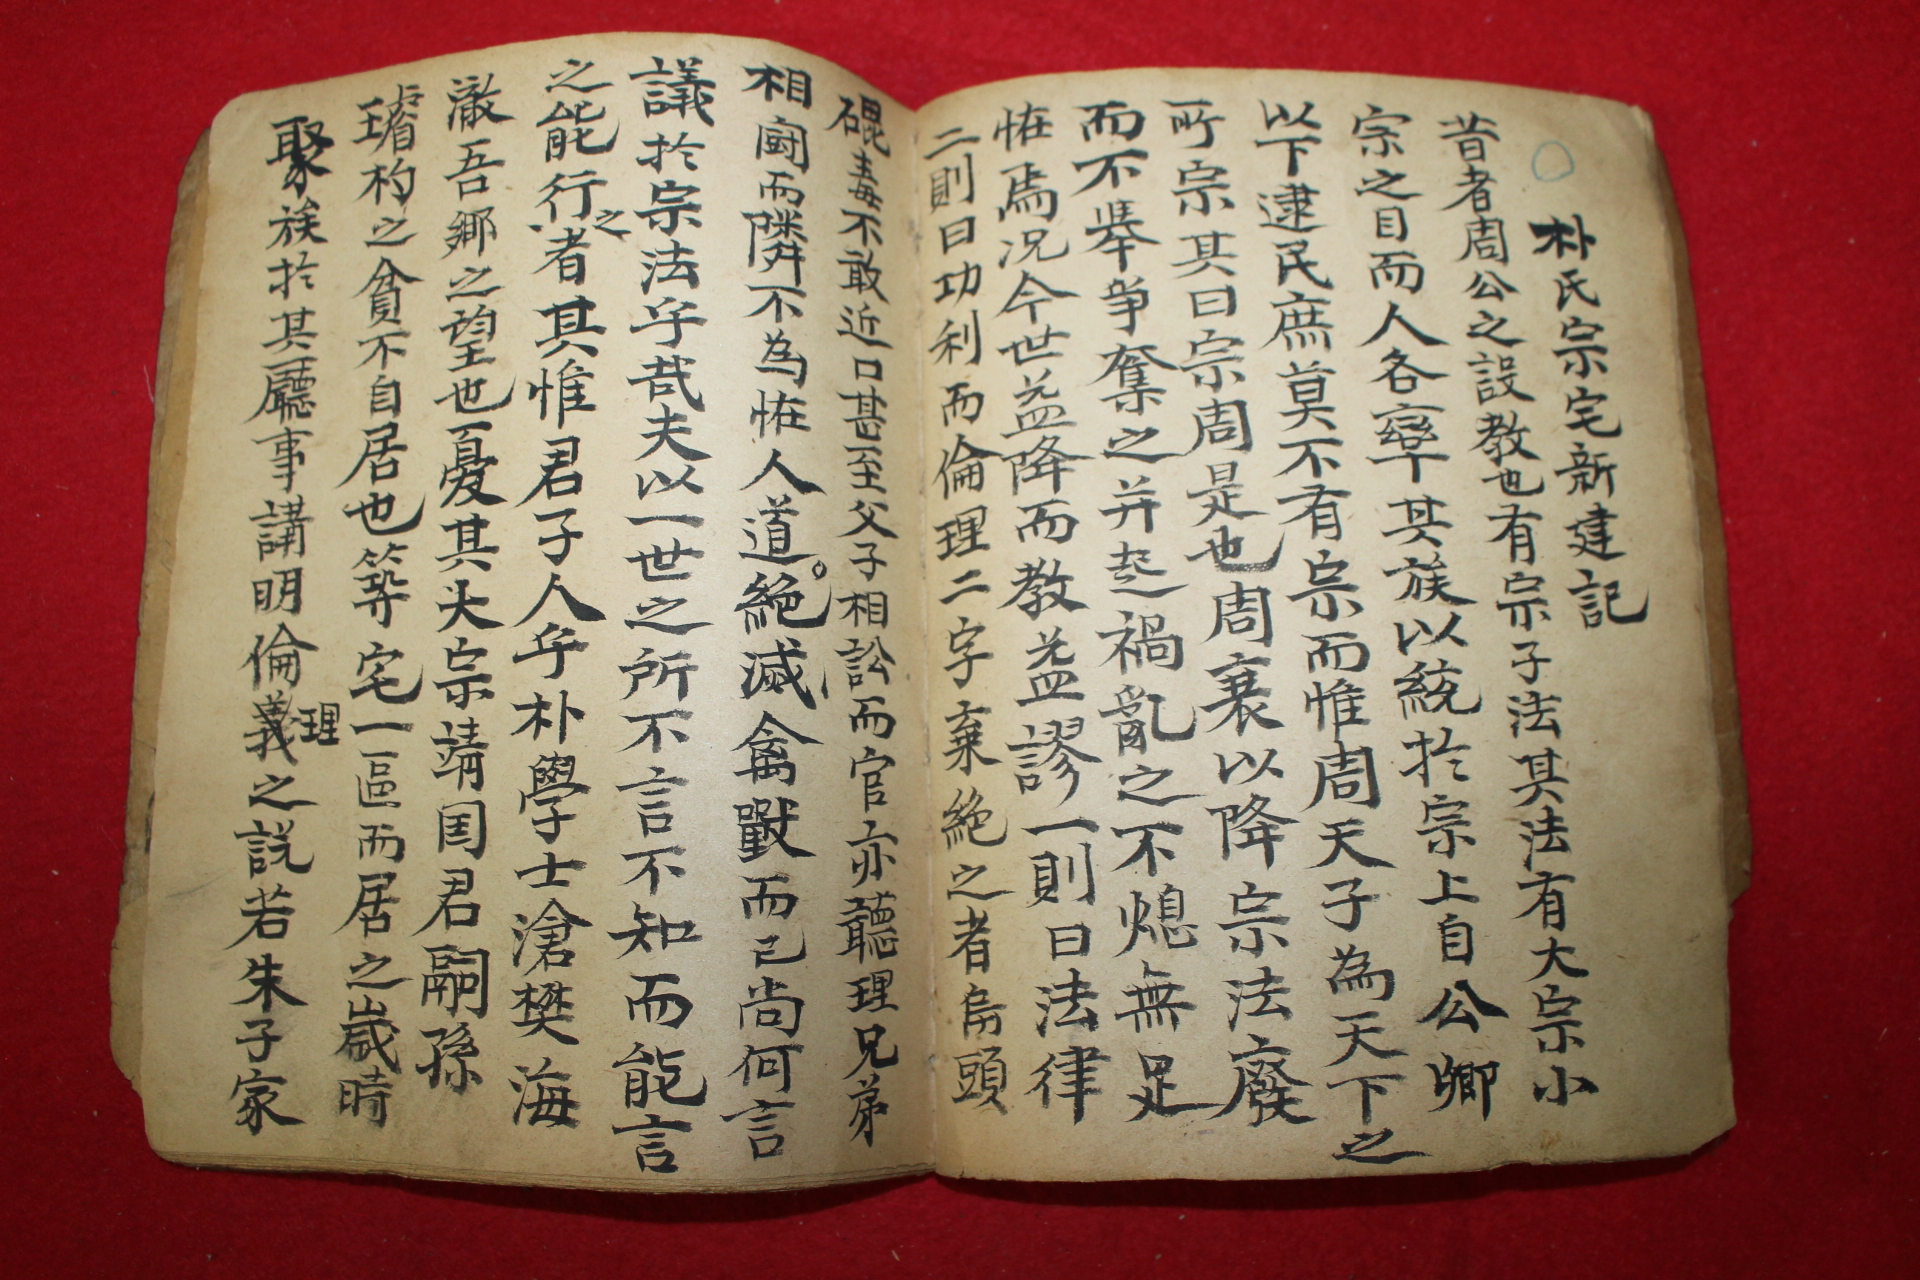 朴氏宗宅新建記
昔者周公之設教也有宗子法其法有大宗小
宗之目而人各率其族以統於宗上自公卿
以下逮民庶莫不有宗而惟周天子為天下之
所宗其曰宗周是也周衰以降宗法廢
而不擧爭奪之并起禍亂之不熄無足
恠焉况今世益降而教益謬一則曰法律
二則曰功利而倫理二字棄絶之者烏頭
磇毒不敢近口甚至父子相訟而官亦聽理兄弟
相鬪而隣不為恠人道絶滅禽獸而已尚何言
議於宗法乎哉夫以一世之所不言不知而能言
之能行之者其惟君子人乎朴學士滄樊海
澈吾鄉之望也憂其大宗靖国君嗣孫
璿杓之貧不自居也築宅一區而居之歲時
聚族於其廳事講明倫義理之說若朱子家